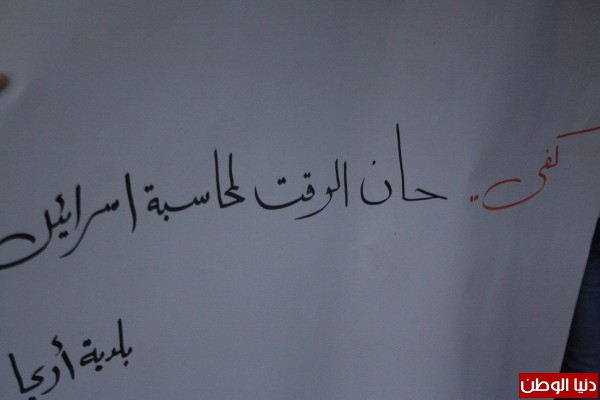 كفى.. حان الوقت لمحاسبة اسرائيل
بلدية أريحا
دنيا الوطن